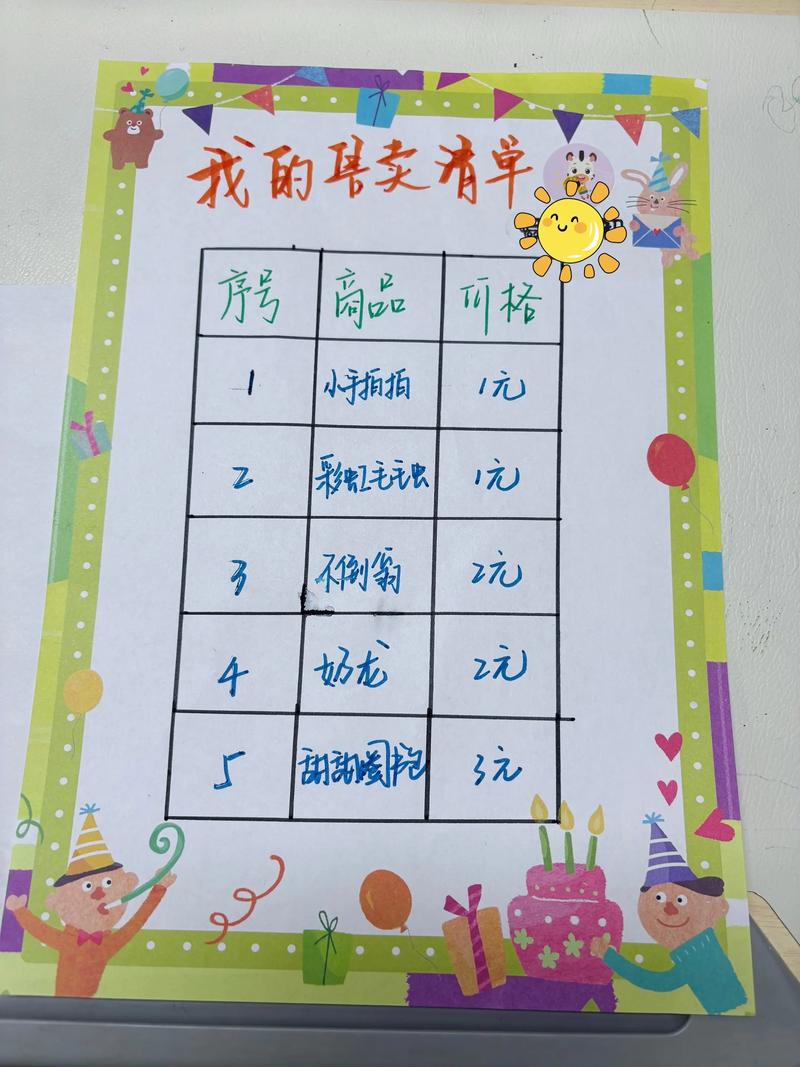 我的售卖清单
序号 商品 价格
1 小手拍拍 1元
2 彩虹毛毛虫 1元
3 不倒翁 2元
4 奶龙 2元
5 甜甜圈包 3元